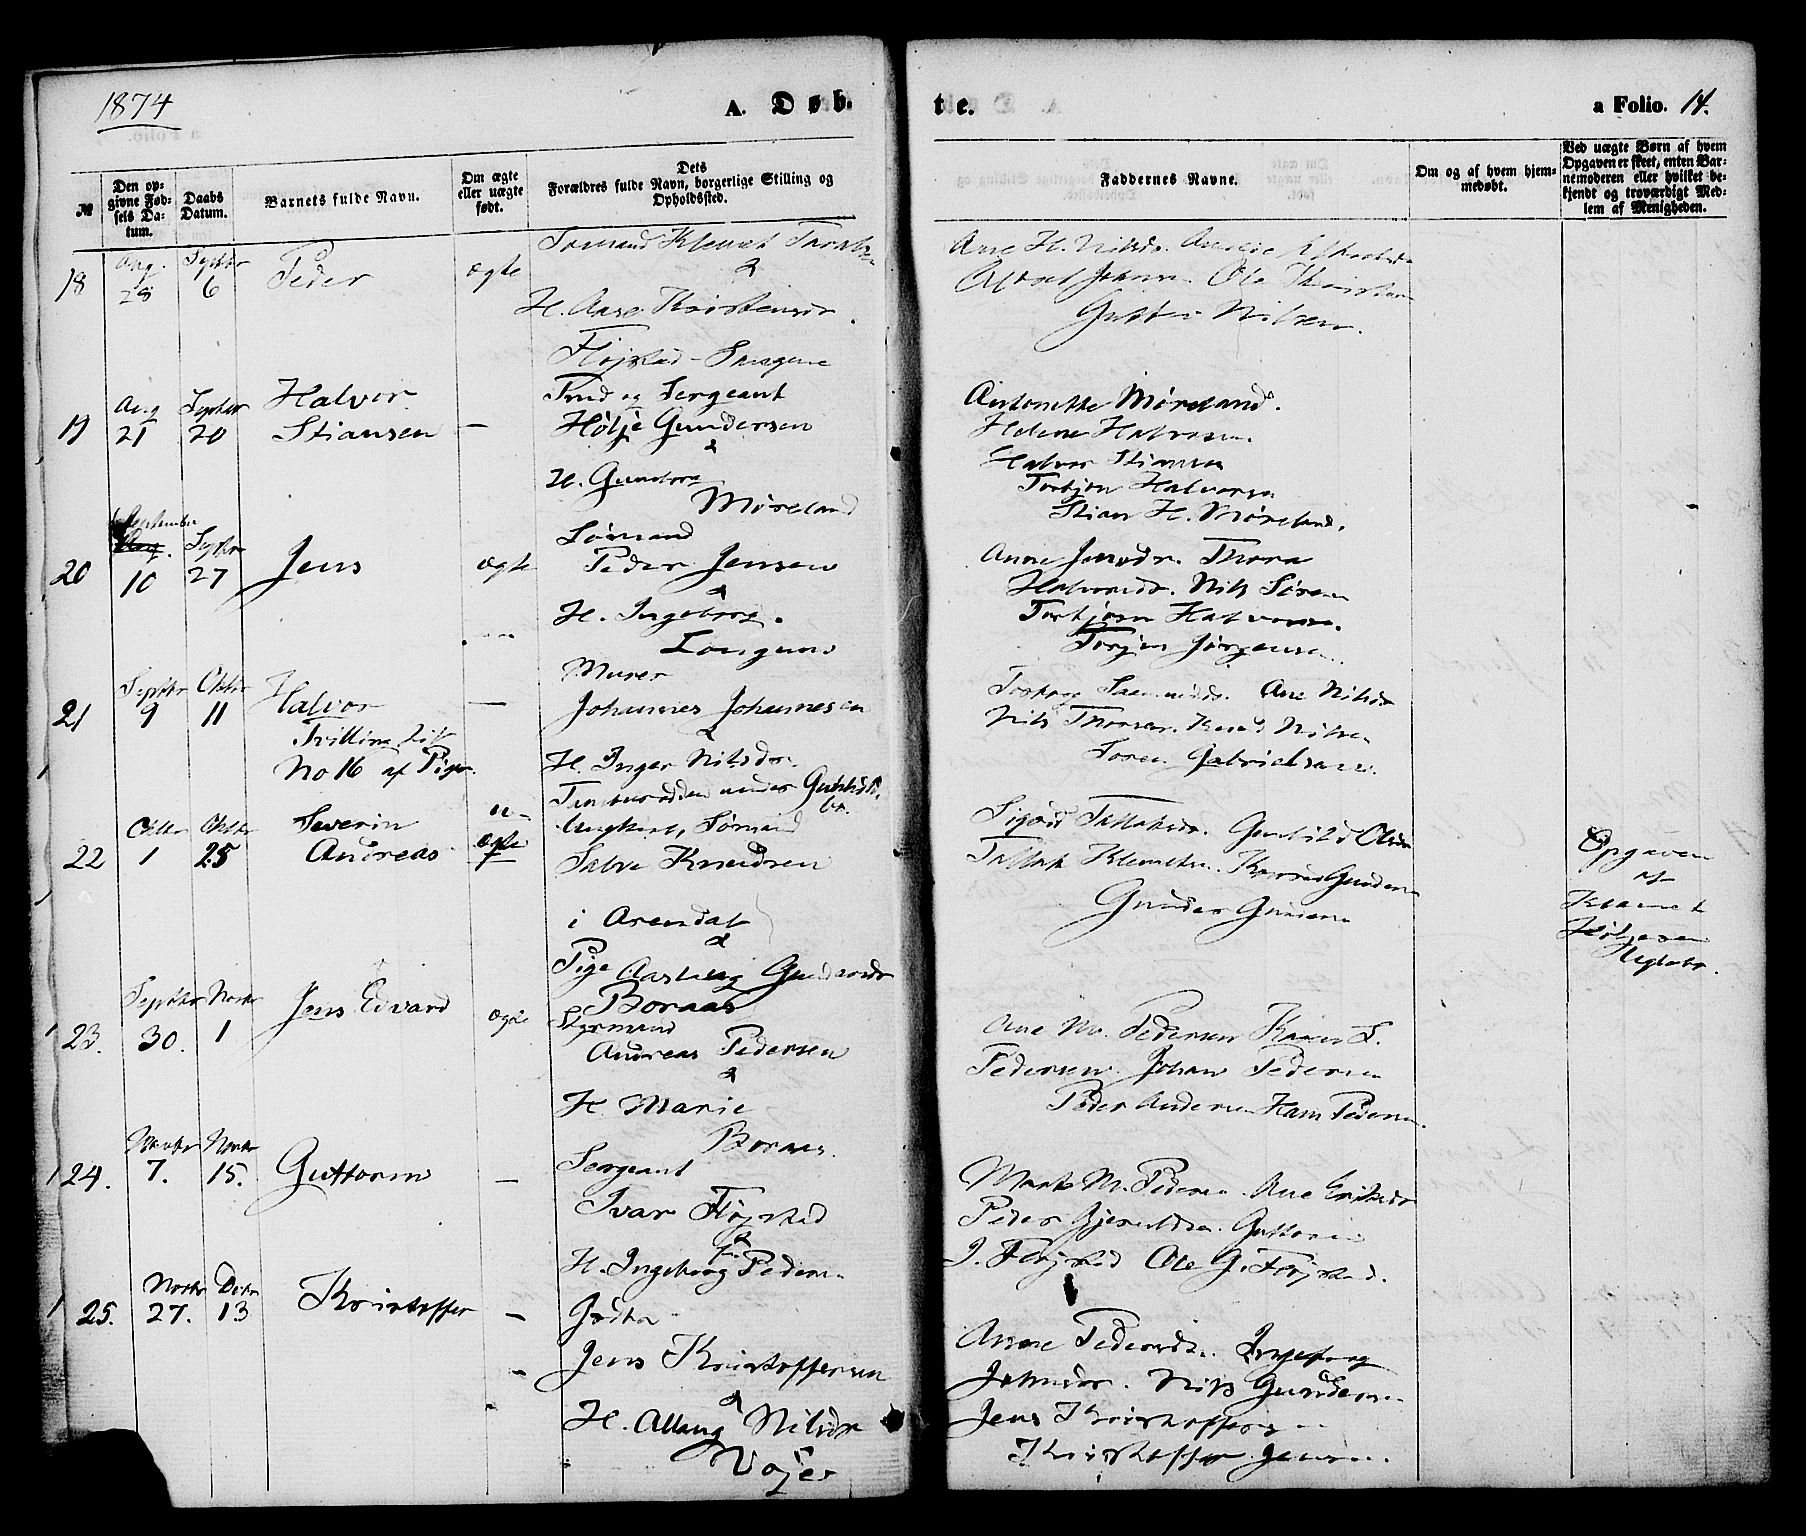 1874
A. Døb-
te.
a Folio. 14.
№
Den op-
givne Fød-
sels Da-
tum.
Daabs
Datum.
Barnets fulde Navn.
Om ægte
eller uægte
født.
Dets
Forældres fulde Navn, borgerlige Stilling og
Opholdssted.
Faddernes Navne.
Om og af hvem hjem-
medøbt.
Ved uægte Børn af hvem
Opgaven er skeet, enten Bar-
nemoderen eller hvilket be-
kjendt og troværdigt Med-
lem af Menigheden.
18 Aug. 28 Septbr 6 Peder ægte
Sømand Klemet
&
H. Aase Kristensdr.
Fløjstad
Ane H. Nilsdr.
Ole
Nilsen.
19 Aug 21 Septbr 20
Halvor
Stiansen —
Sergeant
Høljе Gundersen
&
H. Gunborg
Møreland
Antonette Møreland.
Helene Halvorsen.
Halvor Stiansen
Torbjørn Halvorsen
Stian H. Møreland.
20 September 10 Septbr 27 Jens ægte
Sømand
Peder Jensen
&
H. Ingeborg.
Longum
Anne Jensdr. Thora
Halvorsdr. Nils Sørensen
Torbjørn Halvorsen.
Torjus Jørgensen.
21 Septbr 9 Oktbr 11 Halvor —
Tvilling til
No 16 af Piger.
Murer
Johannes Johannesen
&
H. Inger Nilsdr.
under
Ane Nilsdr
Nils Knud Nilsen
Søren Gabrielsen.
22 Oktbr 1 Oktbr 25
Severin
Andreas
u-
ægte
Ungkarl, Sømand
Salve Knudsen
i Arendal
&
Pige Aasberg Gundersdr
Boraas
Sigrid Tallaksdr. Gunhild Olsdr
Tallak Klemetsen. Gundersen
Gunder Gundersen
Opgaven
af
Klemet
23. Septbr 30. Novbr 1 Jens Edvard ægte
Styrmand
Andreas Pedersen
&
H. Marie
Boraas.
Ane M. Pedersen Karen S.
Pedersen. Johan Pedersen
Peder Andersen Hans Pedersen.
24. Novbr 7. Novbr 15. Guttorm —
Sergeant
Ivar Fløjstad
&
H. Ingeborg Pedersen
M. Pedersen. Ane Eriksdr
Peder Gjeruldsen. Guttorm
J. Fløjstad Ole G. Fløjstad.
25. Novbr 27. Decbr 13 Kristoffer —
Jens Kristoffersen
&
H. Nilsdr
Anne Pedersdr. Ingeborg
Jensdr. Nils Gundersen.
Jens Kristoffersen
Kristoffer Jensen.